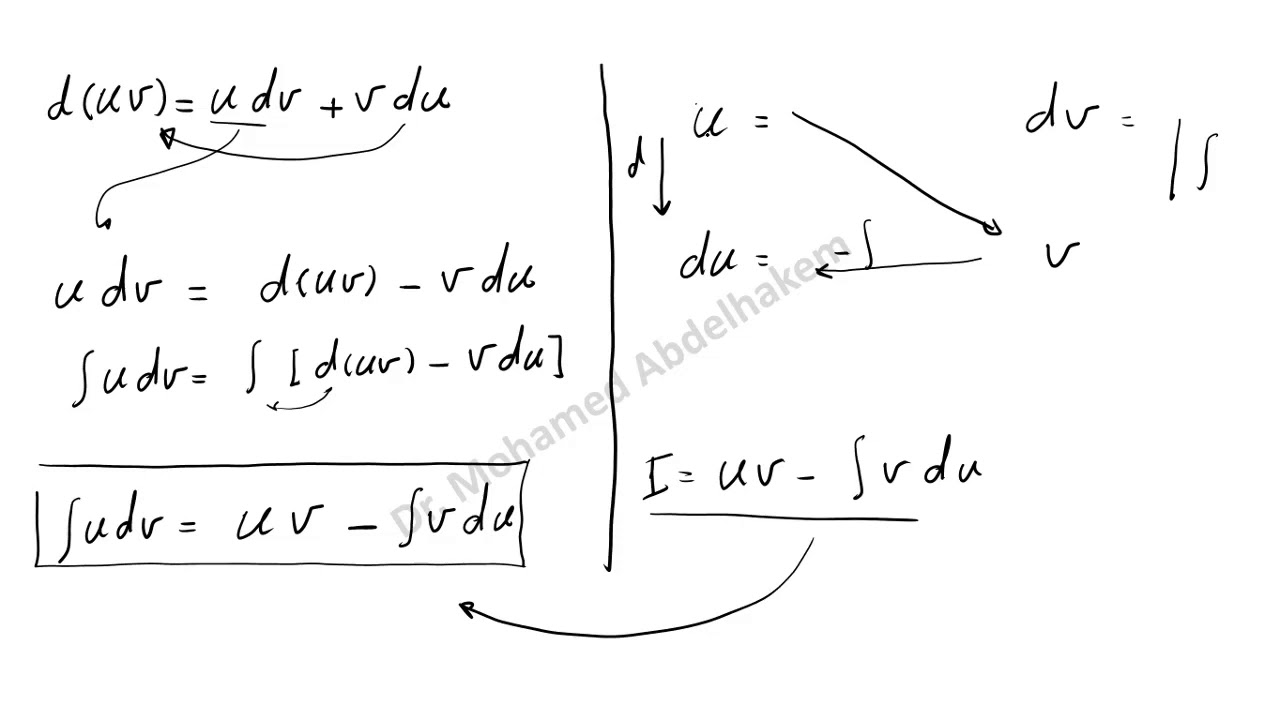 d(uv) = u dv + v du
u dv = d(uv) - v du
∫ u dv = ∫ [d(uv) - v du]
∫ u dv = u v - ∫ v du
u = dv =
d ∫
du = -∫ v
I = uv - ∫ v du
Dr. Mohamed Abdelhakem